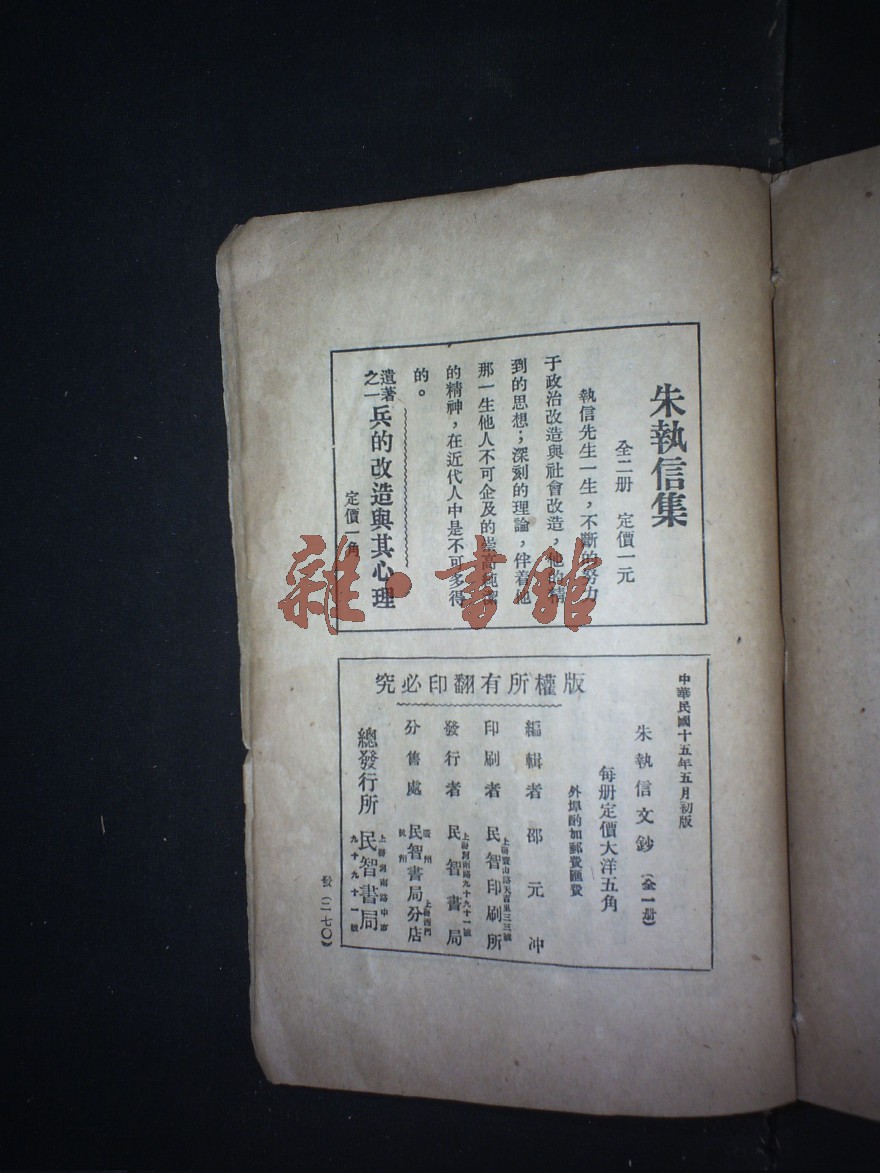 朱執信集
全二册　定價一元
執信先生一生，不斷的努力
于政治改造與社會改造，他的精
到的思想；深刻的理論，伴着他
那一生他人不可企及的崇高純潔
的精神，在近代人中是不可多得
的。
遺著之一 兵的改造與其心理
定價一角
中華民國十五年五月初版
朱執信文鈔（全一册）
每册定價大洋五角
外埠酌加郵費匯費
版權所有翻印必究
編輯者 邵元冲
印刷者 民智印刷所
上海寶山路天吉里三三號
發行者 民智書局
上海河南路九十九十一號
分售處 民智書局分店
廣州 杭州 上海西門
總發行所 民智書局
上海河南路中市
九十九十一號
發（二七〇）
雜·書館